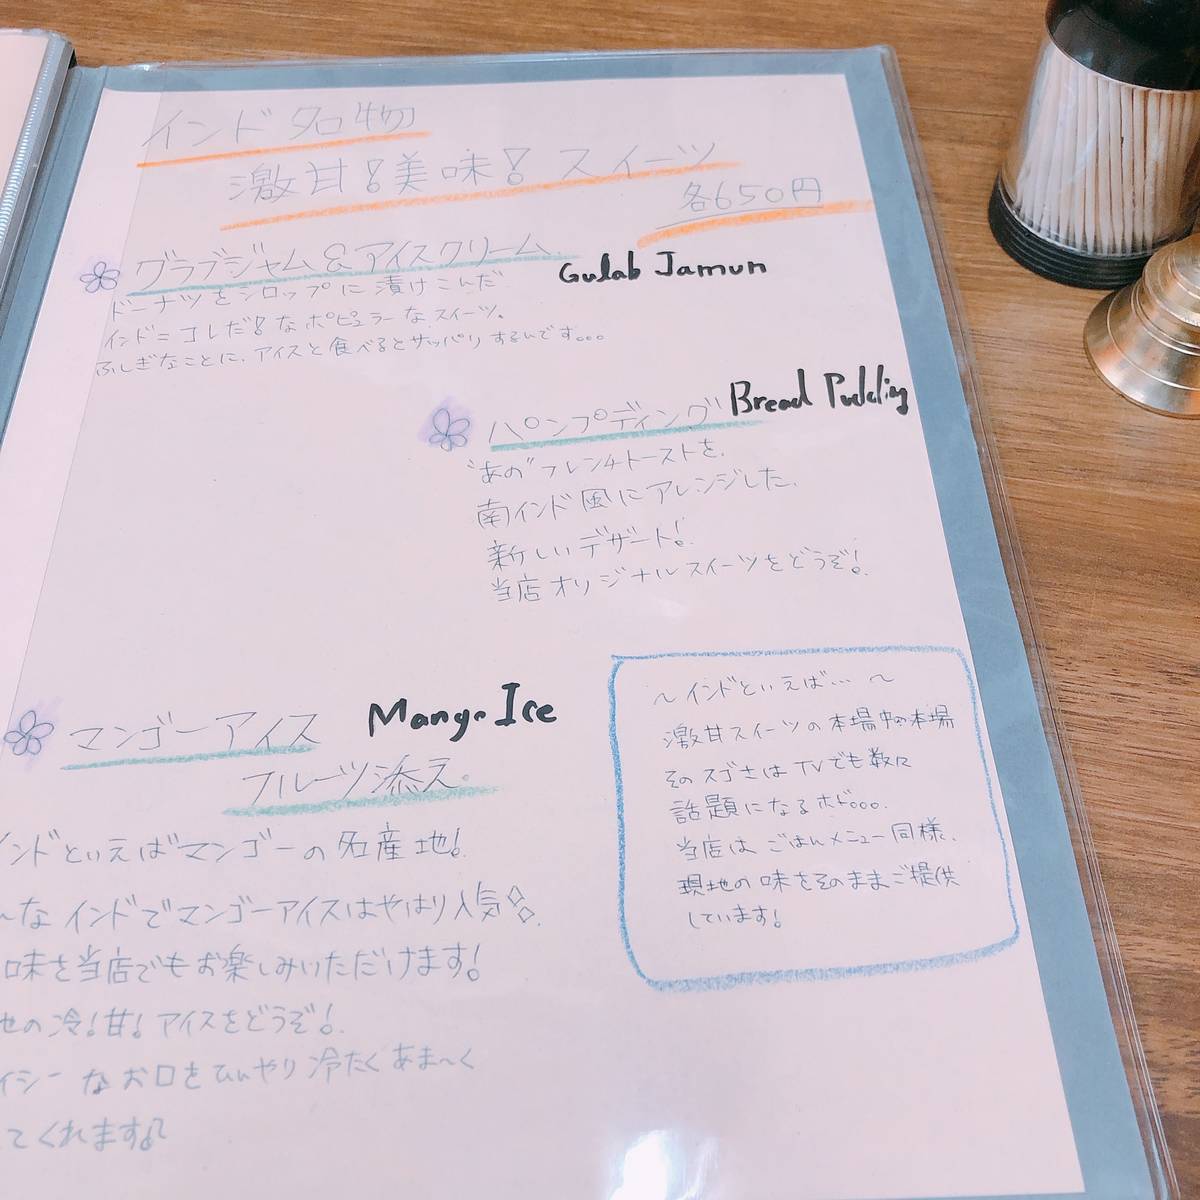 インド名物
激甘!美味!スイーツ
各650円
グラブジャム&アイスクリーム
Gulab Jamun
ドーナツをシロップに漬けこんだ
インド=コレだ!なポピュラーなスイーツ。
ふしぎなことに、アイスと食べるとサッパリするんです。。。
パンプディング
Bread Pudding
"あの"フレンチトーストを、
南インド風にアレンジした、
新しいデザート!
当店オリジナルスイーツをどうぞ!
マンゴーアイス
Mango Ice
フルーツ添え。
インドといえばマンゴーの名産地!
〜なインドでマンゴーアイスはやはり人気!
味を当店でもお楽しみいただけます!
地の冷!甘!アイスをどうぞ!
イシーなお口をひんやり冷たくあま〜く
てくれます♪
〜インドといえば…〜
激甘スイーツの本場中の本場
そのスゴさはTVでも数々
話題になるホド。。。
当店はごはんメニュー同様、
現地の味をそのままご提供
しています!